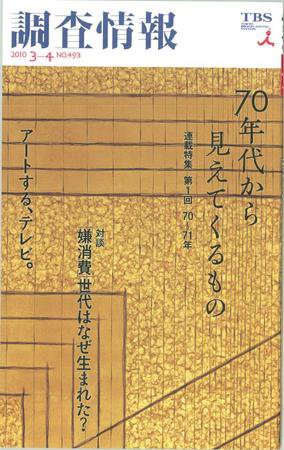 調査情報
TBS
2010 3–4 NO.493
70年代から
見えてくるもの
連載特集 第1回 70–71年
対談
嫌消費世代はなぜ生まれた?
アートする、テレビ。